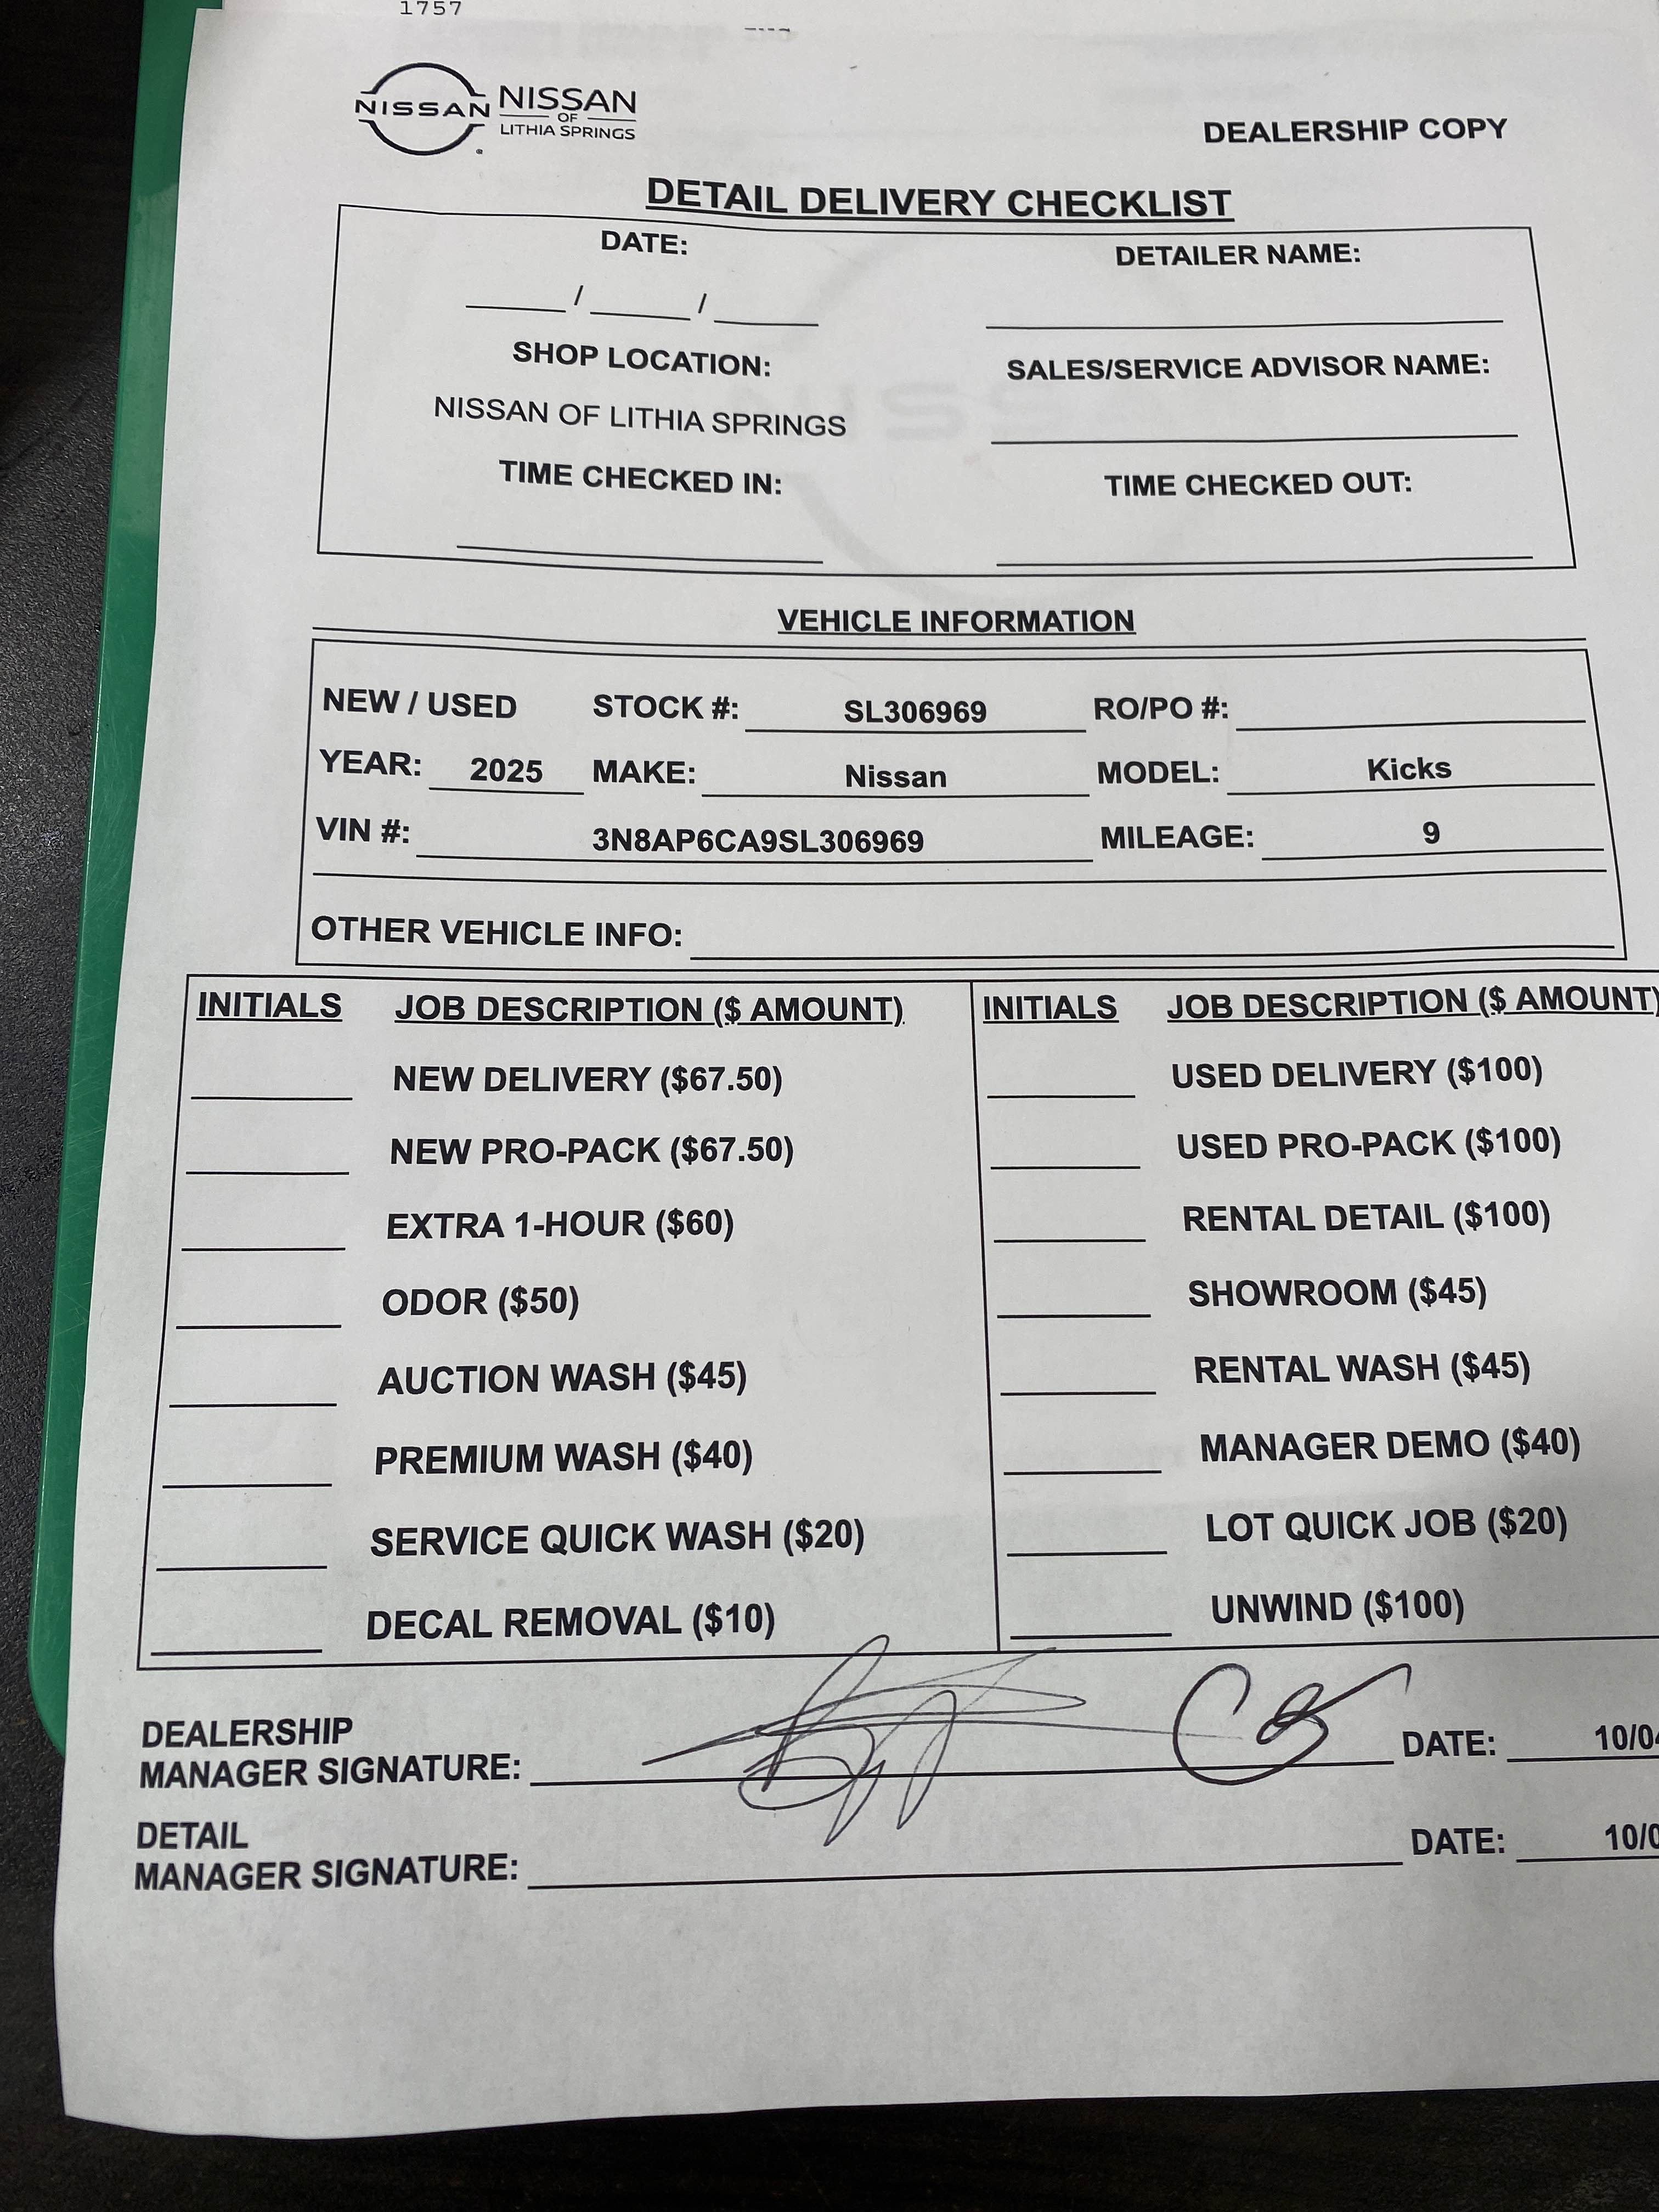 1757
NISSAN NISSAN
OF
LITHIA SPRINGS
DEALERSHIP COPY
DETAIL DELIVERY CHECKLIST
DATE: DETAILER NAME:
____ / ____ / ____ ____
SHOP LOCATION: SALES/SERVICE ADVISOR NAME:
NISSAN OF LITHIA SPRINGS
TIME CHECKED IN: TIME CHECKED OUT:
VEHICLE INFORMATION
NEW / USED STOCK #: SL306969 RO/PO #:
YEAR: 2025 MAKE: Nissan MODEL: Kicks
VIN #: 3N8AP6CA9SL306969 MILEAGE: 9
OTHER VEHICLE INFO:
INITIALS JOB DESCRIPTION ($ AMOUNT) INITIALS JOB DESCRIPTION ($ AMOUNT)
NEW DELIVERY ($67.50) USED DELIVERY ($100)
NEW PRO-PACK ($67.50) USED PRO-PACK ($100)
EXTRA 1-HOUR ($60) RENTAL DETAIL ($100)
ODOR ($50) SHOWROOM ($45)
AUCTION WASH ($45) RENTAL WASH ($45)
PREMIUM WASH ($40) MANAGER DEMO ($40)
SERVICE QUICK WASH ($20) LOT QUICK JOB ($20)
DECAL REMOVAL ($10) UNWIND ($100)
DEALERSHIP
MANAGER SIGNATURE: DATE: 10/04
DETAIL
MANAGER SIGNATURE: DATE: 10/0